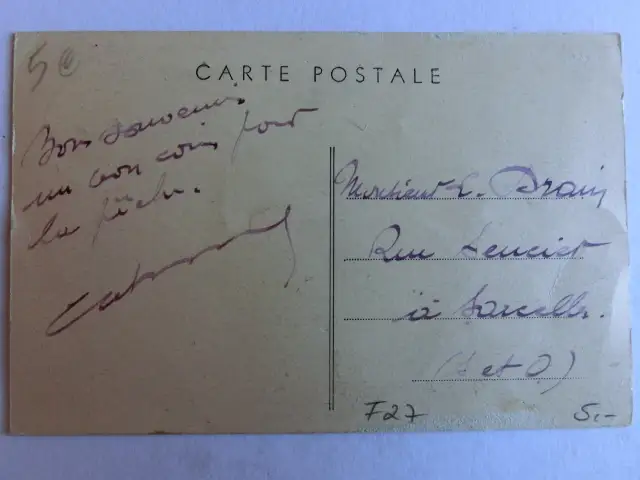 5€
CARTE POSTALE
Bon souvenir
un bon coin pour
la pêche.
Monsieur L. Drain
Rue
à Sarcelles.
(S et O)
F27 5.-